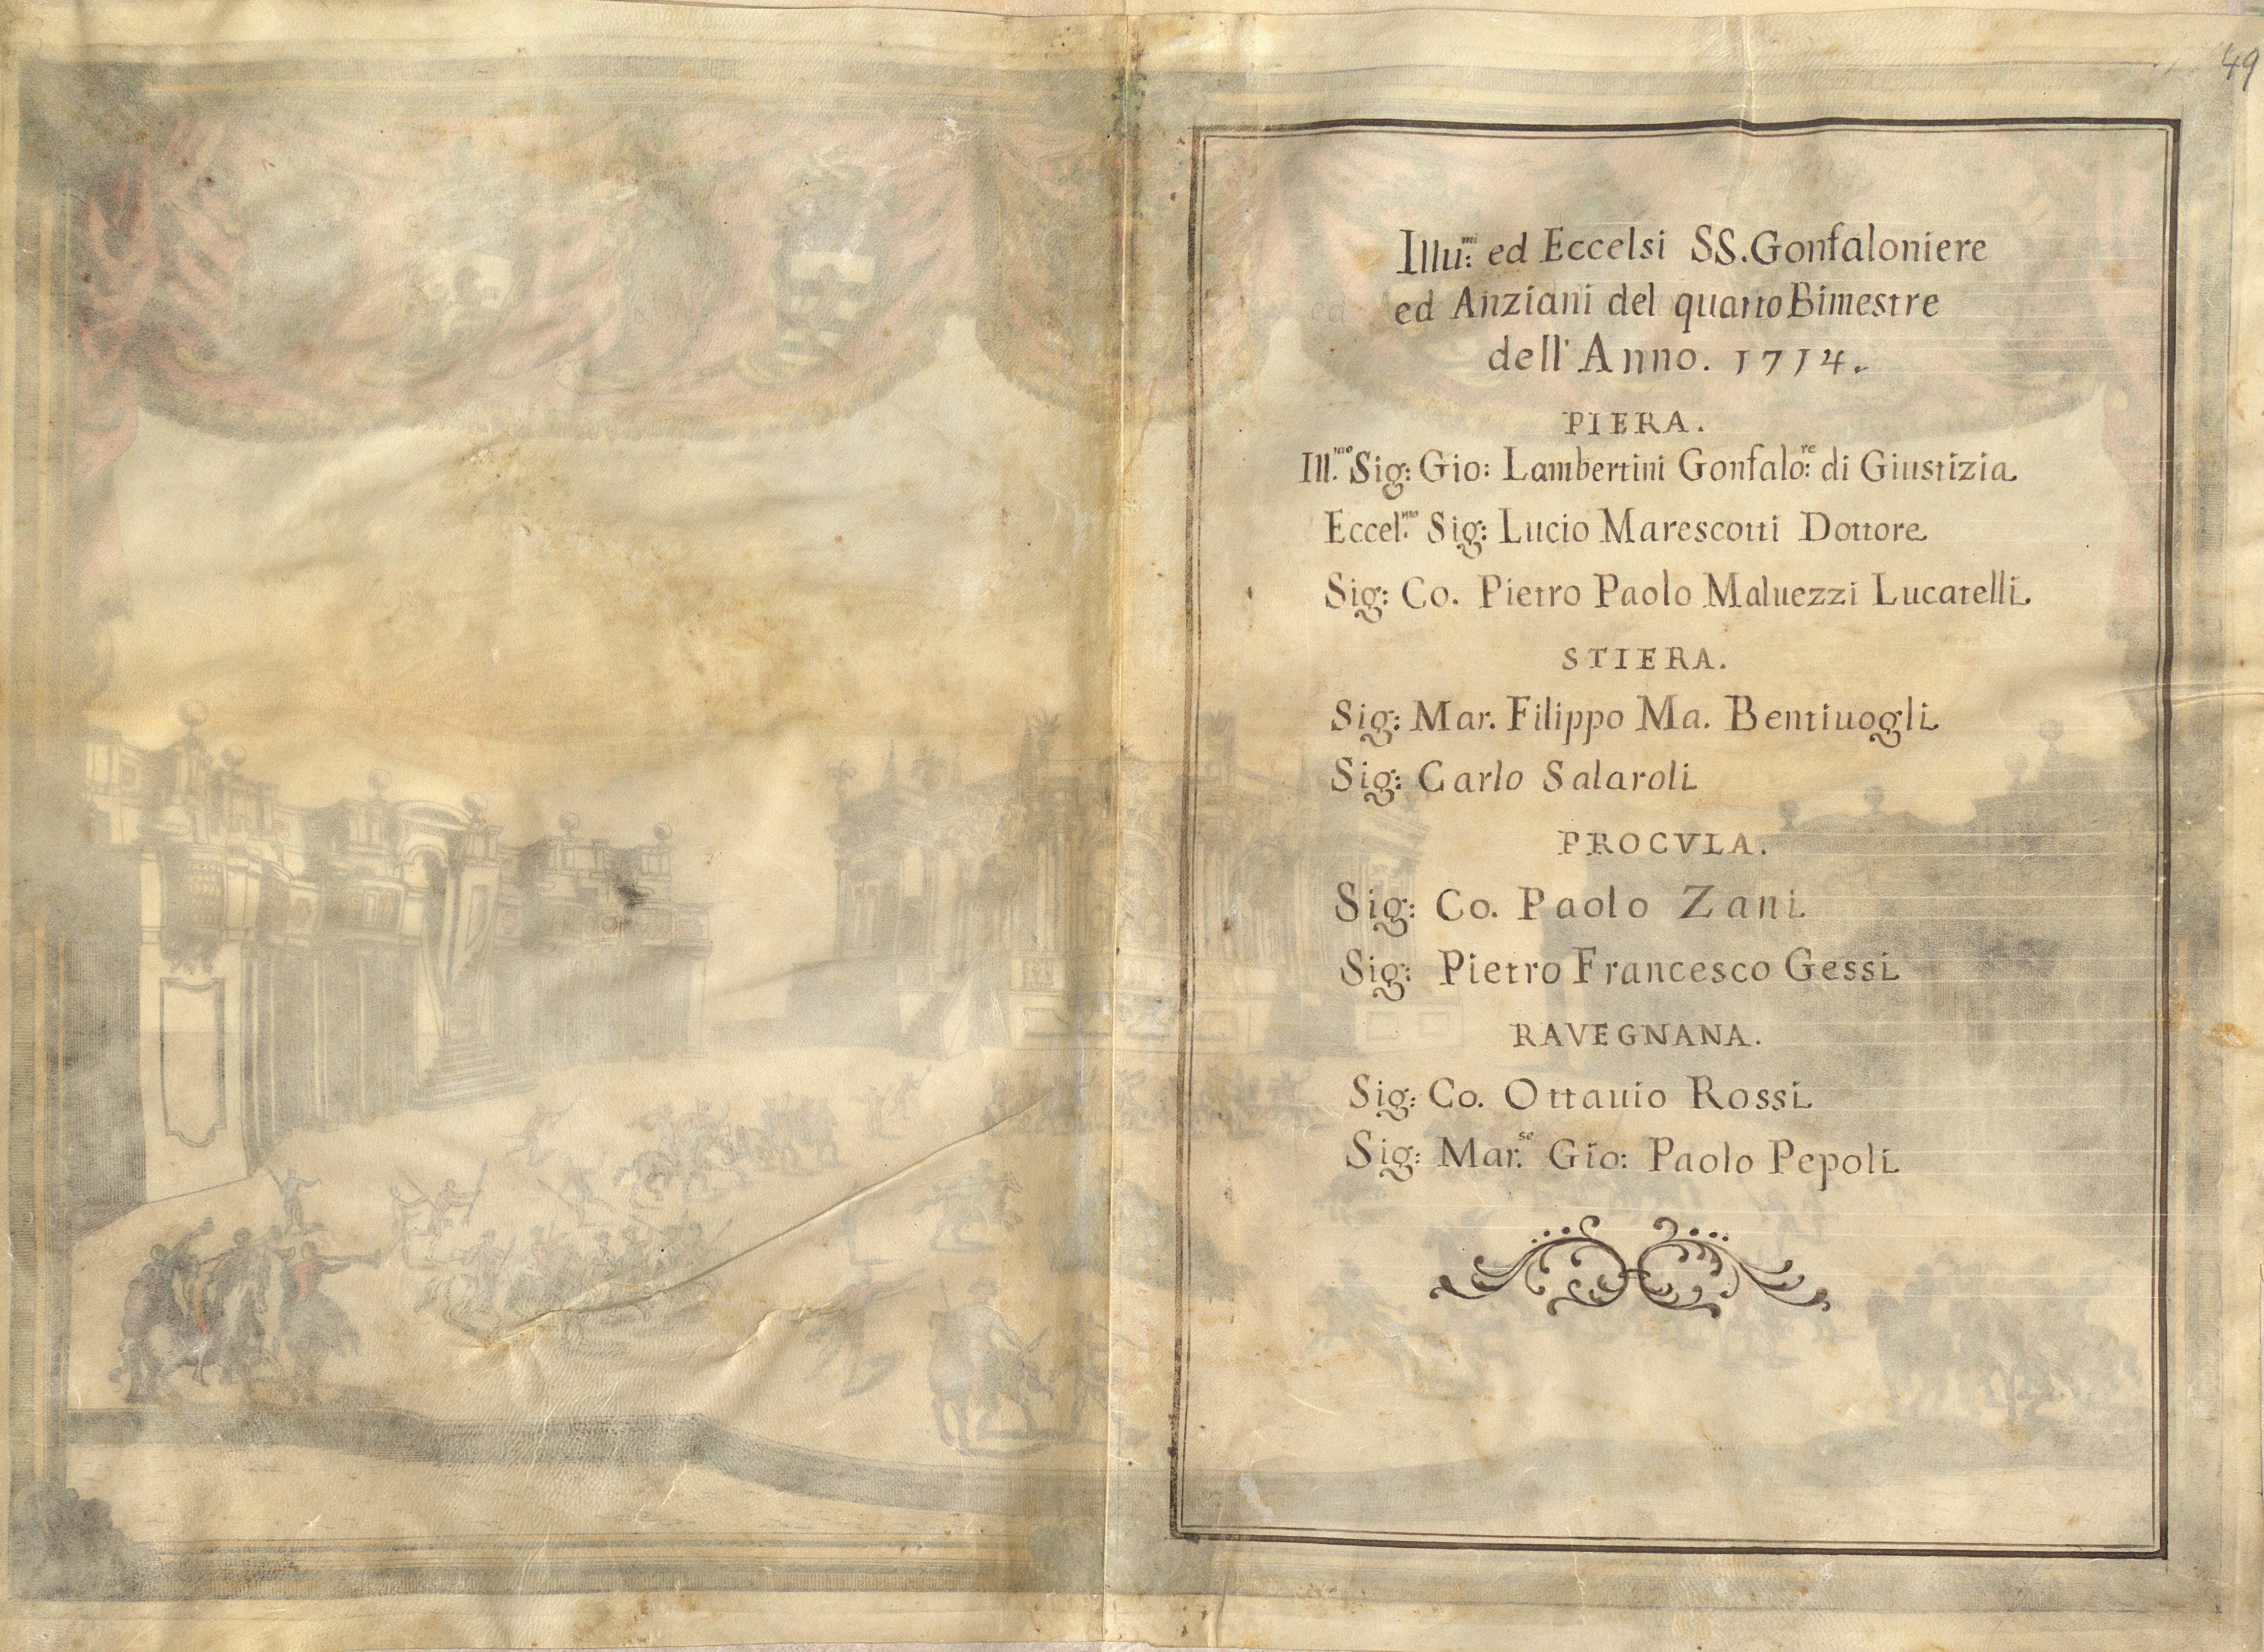 49
Illu:mi ed Eccelsi SS. Gonfaloniere
ed Anziani del quarto Bimestre
dell' Anno. 1714.
PIERA.
Ill.mo Sig: Gio: Lambertini Gonfalo:re di Giustizia
Eccel.mo Sig: Lucio Marescotti Dottore
Sig: Co. Pietro Paolo Maluezzi Lucatelli
STIERA.
Sig: Mar. Filippo Ma. Bentiuogli
Sig: Carlo Salaroli
PROCVLA.
Sig: Co. Paolo Zani
Sig: Pietro Francesco Gessi
RAVEGNANA.
Sig: Co. Ottauio Rossi
Sig: Mar.se Gio: Paolo Pepoli